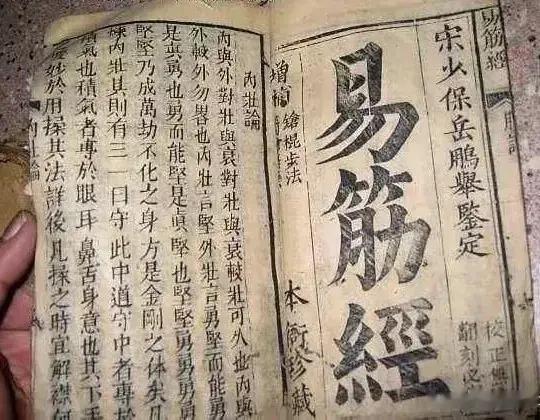 易筋經
宋少保岳鵬舉鑒定
校正無
翻刻必
易筋經
增補
鎗棍步法
本衙珍藏
內壯論
內與外對壯與衰對壯與衰較壯可外也內與
外較外勿畧也內壯言堅外壯言勇堅而能勇
是真勇也勇而能堅是真堅也堅堅勇勇勇勇
堅堅乃成萬劫不化之身方是金剛之體矣凡
內壯其則有三一曰守此中道守中者專於
積氣也積氣者專於眼耳鼻舌身意也其下手
妙於用揉其法詳後凡揉之時宜解襟仰
內壯論